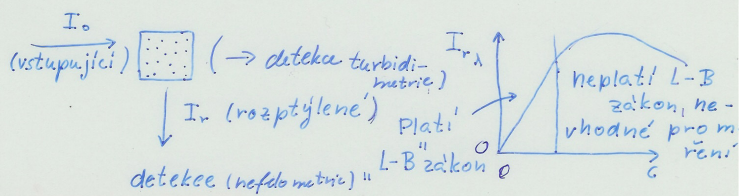 I₀
(vstupující)
(→ detekce turbidi-
metrie)
Iᵣ (rozptýlené)
detekce (nefelometrie)
Iᵣ λ
platí
"L-B" zákon
neplatí L-B
zákon, ne-
vhodné pro m
ěření
0
0
c